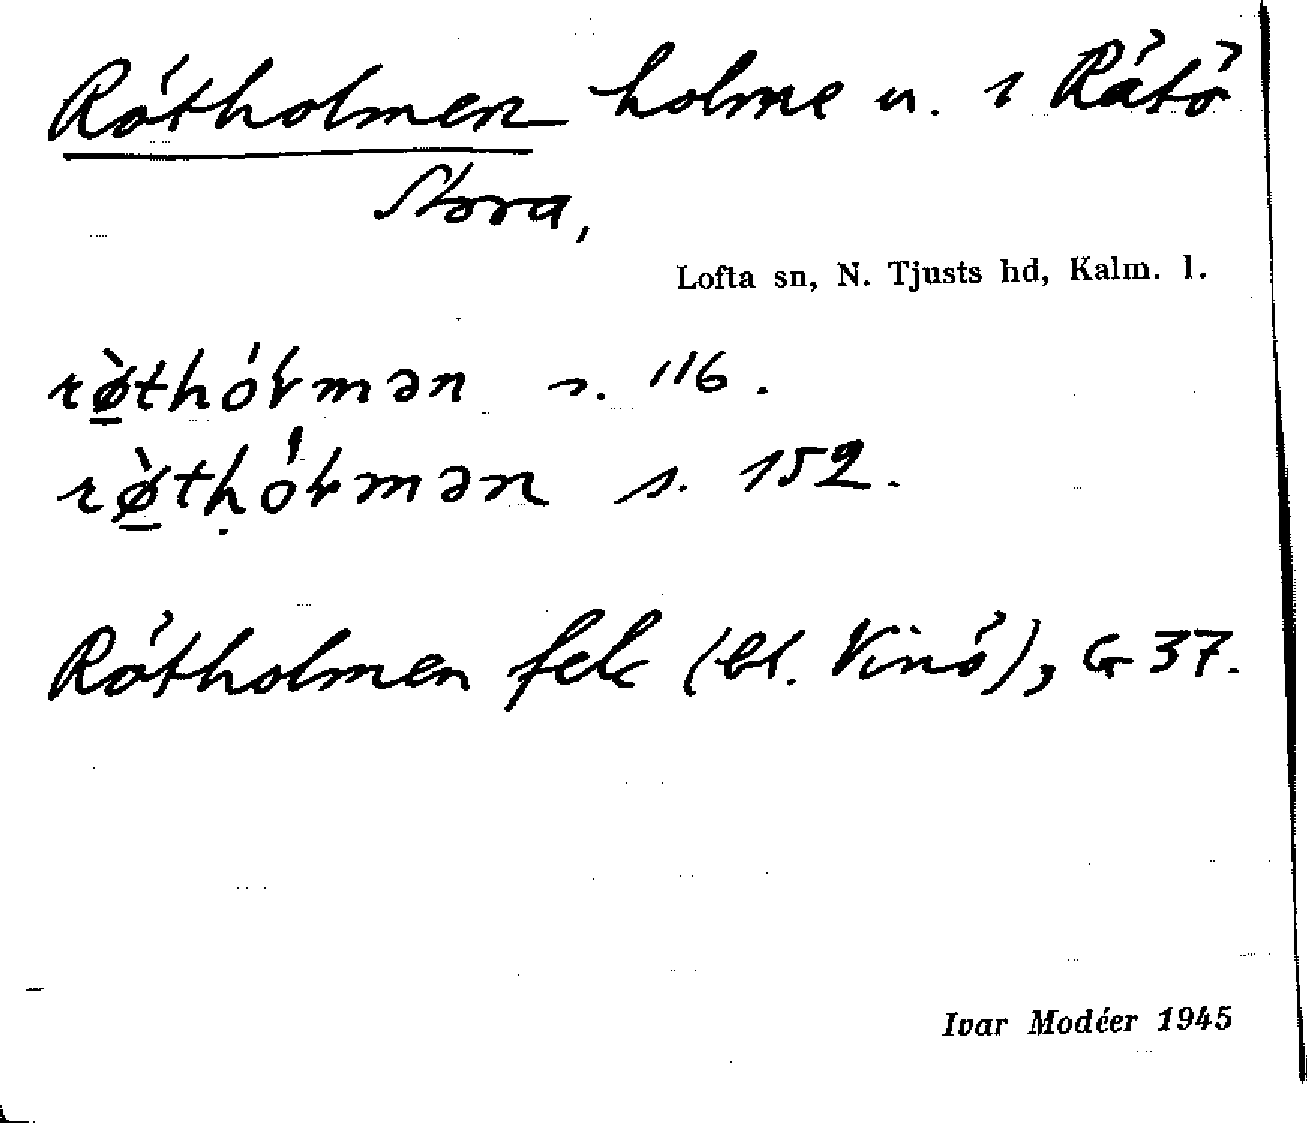 Rötholmen holme n. i Råtö
Stora,
Lofta sn, N. Tjusts hd, Kalm. l.
rø̱̀thóɫmən s. 116.
rø̱̀tḥóɫmən s. 152.
Rötholmen fek (bl. Vinö), G 37.
Ivar Modéer 1945